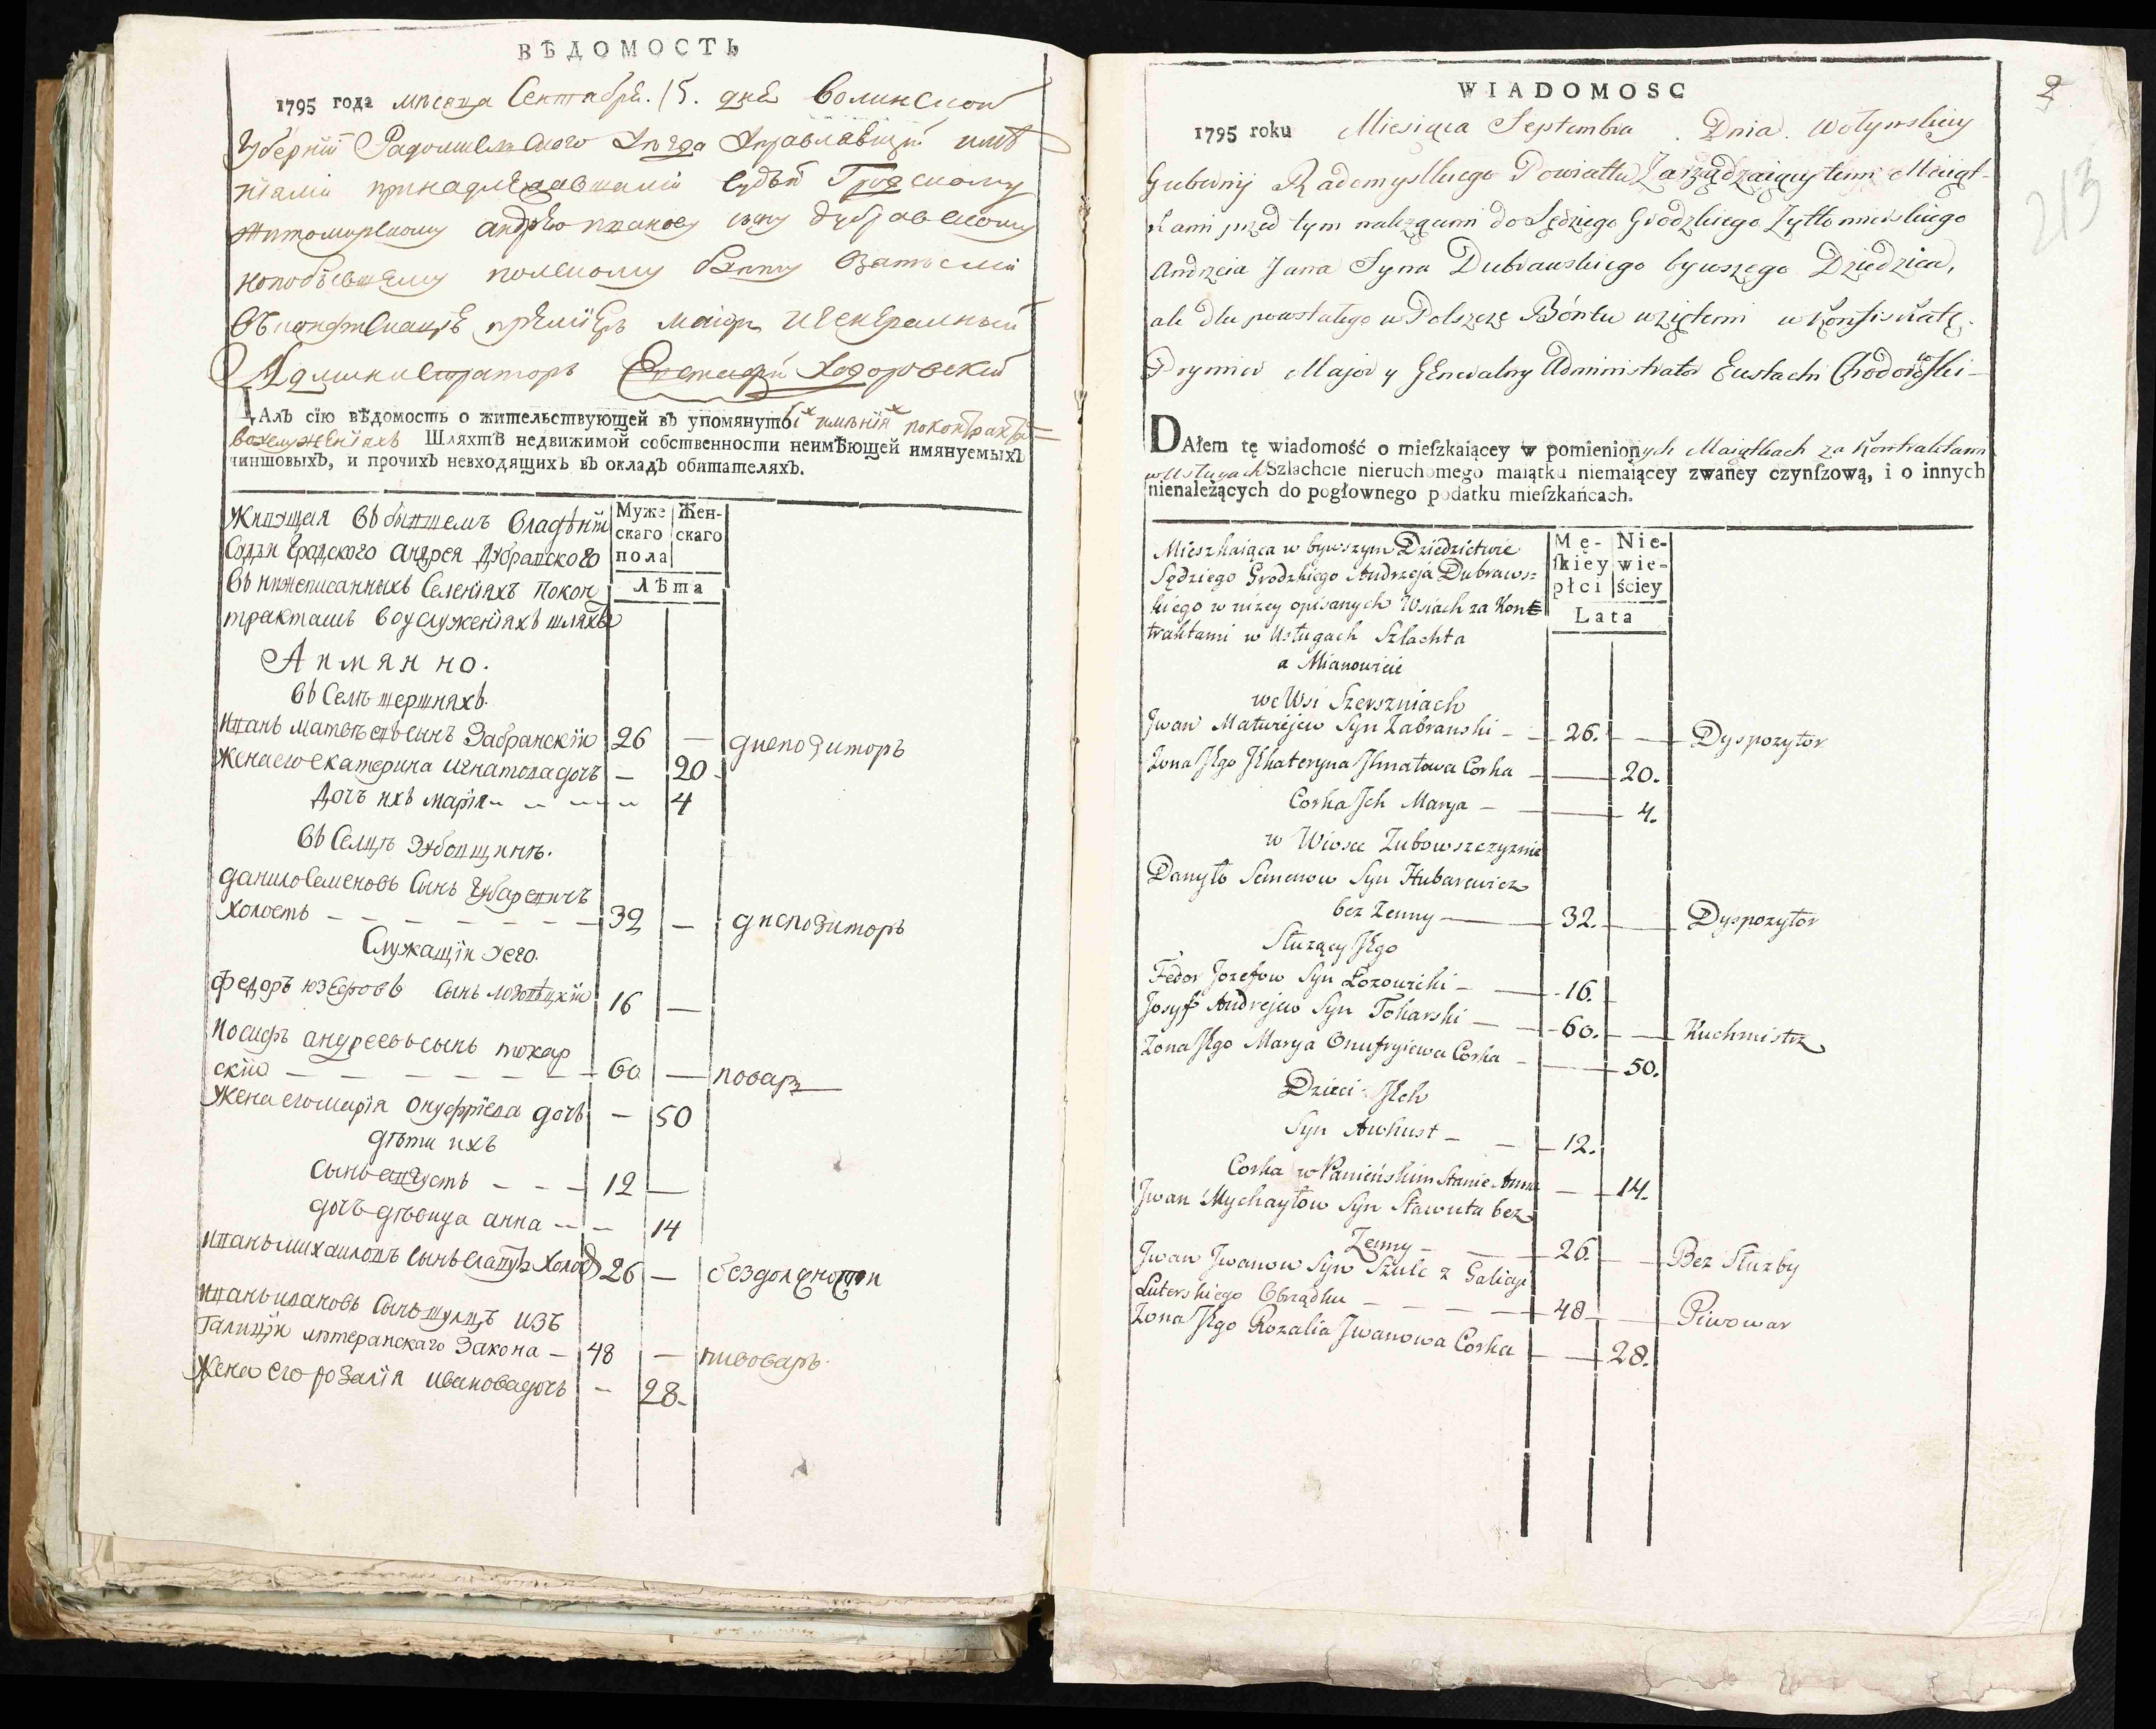 ВѢДОМОСТЬ
1795 года мѣсяца Сентября. 15. дня Волинской
Губернїи Радомисльского Уезда Управлявщїй имѣ
нїями принадлежавшими Судьѣ Гродскому
житомирскому андрѣю иванову сыну дубравскому
нопобывшему полскому бунту взятыми
въ конфискацїю премїеръ маіоръ и генеральный
Администраторъ Евстафїй Ходоровскїй
ДАлъ сїю вѣдомость о жительствующей въ упомянутыхъ имѣнїяхъ поконтракта=
вослуженїяхъ Шляхтѣ недвижимой собственности неимѣющей имянуемыхъ
чиншовыхъ, и прочихъ невходящихъ въ окладъ обитателяхъ.
Живущая въ бывшемъ владѣнїи
Судьи Гродского Андрея Дубравского
въ нижеписанныхъ Селенїяхъ покон
трактамъ воуслуженїяхъ шляхта
Муже скаго пола
Жен- скаго
Лѣта
А имянно.
въ Селѣ шершняхъ.
иванъ матвѣевъ сынъ Забранскїй 26 — диспозиторъ
Жена его екатерина игнатова дочь — 20
Дочь ихъ марїя 4
въ Селцѣ Зубовщинѣ.
данило Семеновъ Сынъ Губаревичъ
холостъ — 32 — диспозиторъ
Служащїи Уего.
федоръ юзефовъ Сынъ лозовѣцкїй 16 —
иосифъ андреевъ сынъ токар
скїй — 60 — поваръ
Жена его марїя онуфрїева дочь — 50
дѣти ихъ
Сынъ августъ — 12 —
дочь девица анна — 14
иванъ михаиловъ Сынъ славута Холос 26 — бездолжности
иванъ ивановъ Сынъ шулцъ изъ
Галицїи лютеранскаго Закона — 48 — пивоваръ.
Жена его розалїя ивановадочь — 28
WIADOMOSC
2
213
1795 roku Miesiąca Septembra . Dnia. Wołynskiey
Gubernij Radomyslkiego Powiattu Zarządzaiący temi Maiąt-
kami przed tym nalezącemi do Sędziego Grodzkiego Zyttomierskiego
Andrzeia Jana Syna Dubrawskiego bywszego Dziedzica,
ale dla powstałego w Polszcze Bóntu wziętemi w Konfiskatę.
Prymier Major y Generalny Administrator Eustachi Chodorowski-
DAłem tę wiadomość o mieſzkaiącey w pomienionych Maiątkach za Kontraktami
w Usługach Szlachcie nieruchomego maiątku niemaiącey zwaney czynſzową, i o innych
nienależących do pogłownego podatku mieſzkańcach.
Mieszkaiąca w bywszym Dziedzictwie
Sędziego Grodzkiego Andrzeja Dubraws=
kiego w niżey opisanych Wsiach za Kont
traktami w Usługach Szlachta
Mę- ſkiey płci
Nie- wie- ściey
Lata
a Mianowicie
we Wsi Szerszniach
Jwan Matwiejew Syn Zabranski - 26. — Dyspozytor
Zona Jego Jkateryna Jhnatowa Corka — 20.
Corka Jch Marya — 4.
w Wiosce Zubowszczyznie
Danyło Semenow Syn Hubarewicz
bez Zenny — 32. — Dyspozytor
Słuzący Jego
Fedor Jozefow Syn Łozowicki — 16.
Josyf Andrejew Syn Tokarski — 60. — Kuchmistrz
Zona Jego Marya Onufryiewa Corka — 50.
Dzieci Jch
Syn Awhust — 12.
Corka w Panieńskim Stanie Anna — 14.
Jwan Mychayłow Syn Sławuta bez
Zenny — 26. — Bez Służby
Jwan Jwanow Syn Szulc z Galicyi
Luterskiego Obrządku — 48 — Piwowar
Zona Jego Rozalia Jwanowa Corka — 28.